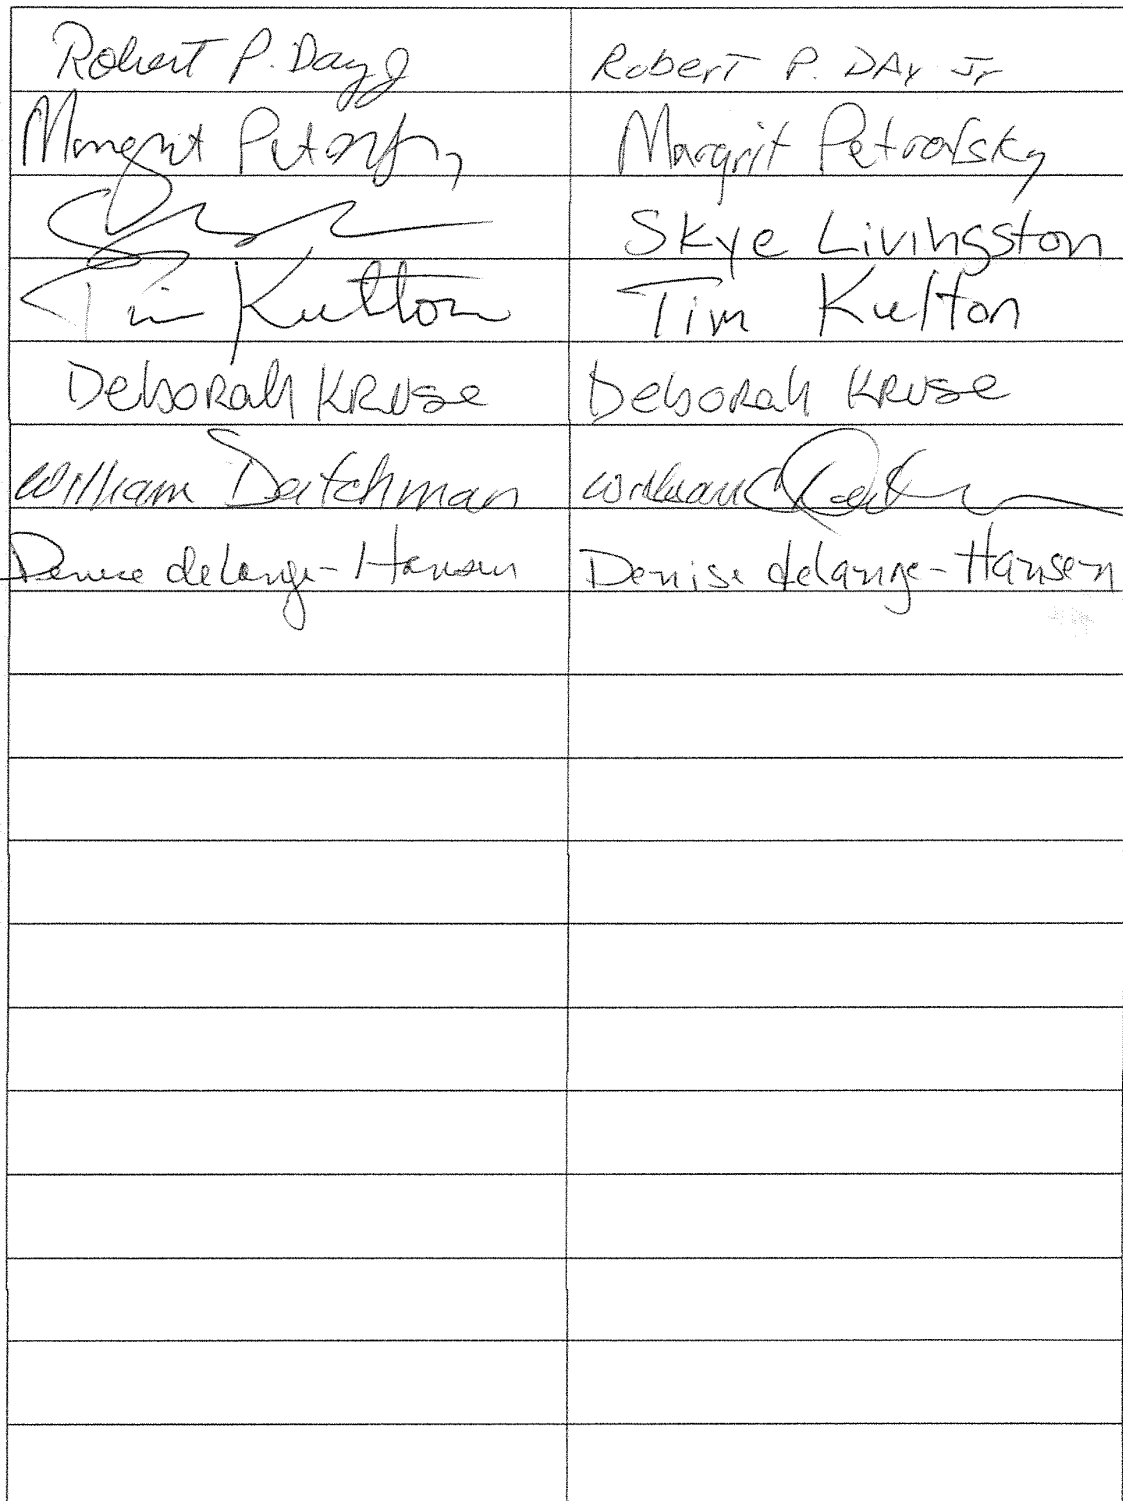 Robert P. Day J Robert P. DAy Jr
Margrit Margrit Petrofsky
Skye Livingston
Tim Kulton Tim Kulton
Deborah KRUse Deborah KRUse
William Deitchman William
Denise deLange-Hansen Denise deLange-Hansen